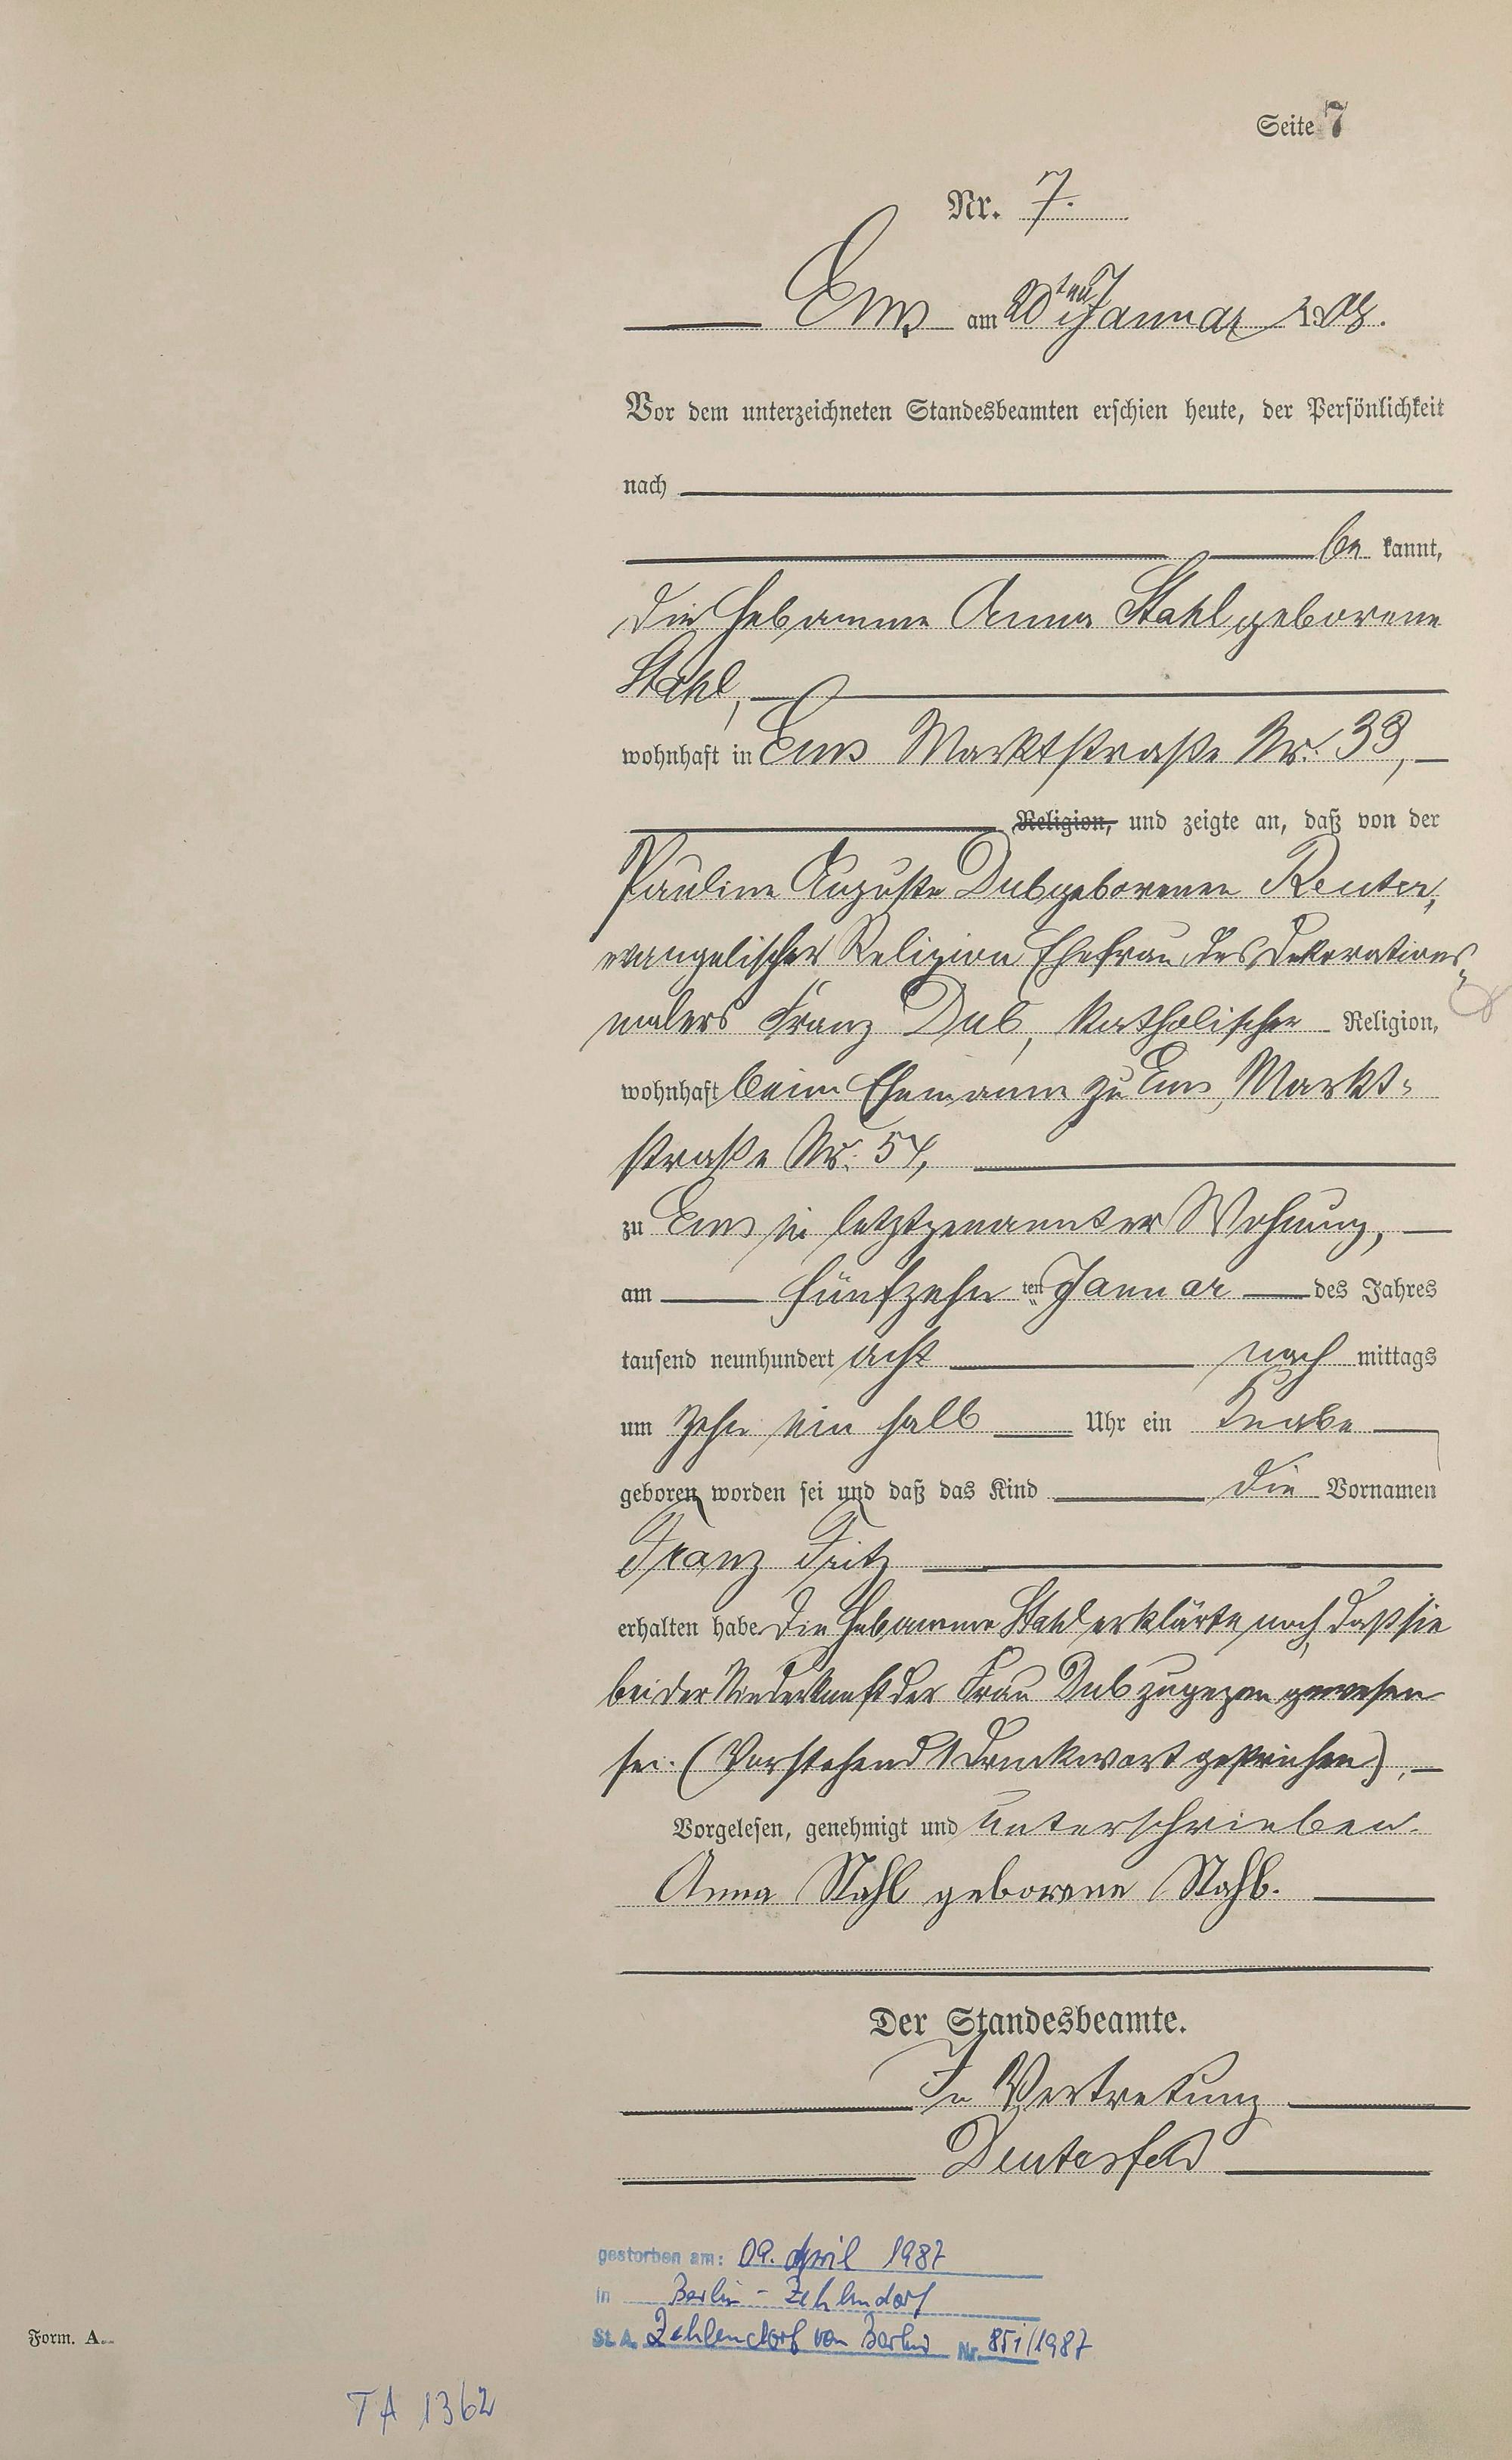 Seite 7
Nr. 7.
Ems am 20ten Januar 1908.
Vor dem unterzeichneten Standesbeamten erschien heute, der Persönlichkeit
nach
be kannt,
die Hebamme Anna Stahl geborene
Stahl,
wohnhaft in Ems Marktstraße Nr. 39,
Religion, und zeigte an, daß von der
Pauline Auguste Dub geborenen Reuter,
evangelischer Religion Ehefrau des Dekorations-
malers Franz Dub, katholischer Religion,
wohnhaft beim Ehemanne zu Ems, Markt-
straße Nr. 54,
zu Ems in letztgenannter Wohnung,
am fünfzehn ten Januar des Jahres
tausend neunhundert acht nach mittags
um zehn ein halb Uhr ein Knabe
geboren worden sei und daß das Kind die Vornamen
Franz Fritz
erhalten habe. Die Hebamme Stahl erklärte noch, daß sie
bei der Niederkunft der Frau Dub zugegen gewesen
sei. (Vorstehend 1 Druckwort gestrichen).
Vorgelesen, genehmigt und unterschrieben.
Anna Stahl geborene Stahl.
Der Standesbeamte.
In Vertretung
gestorben am: 09. April 1987
in Berlin - Zehlendorf
St. A. Zehlendorf von Berlin Nr. 851/1987
Form. A.
TA 1362